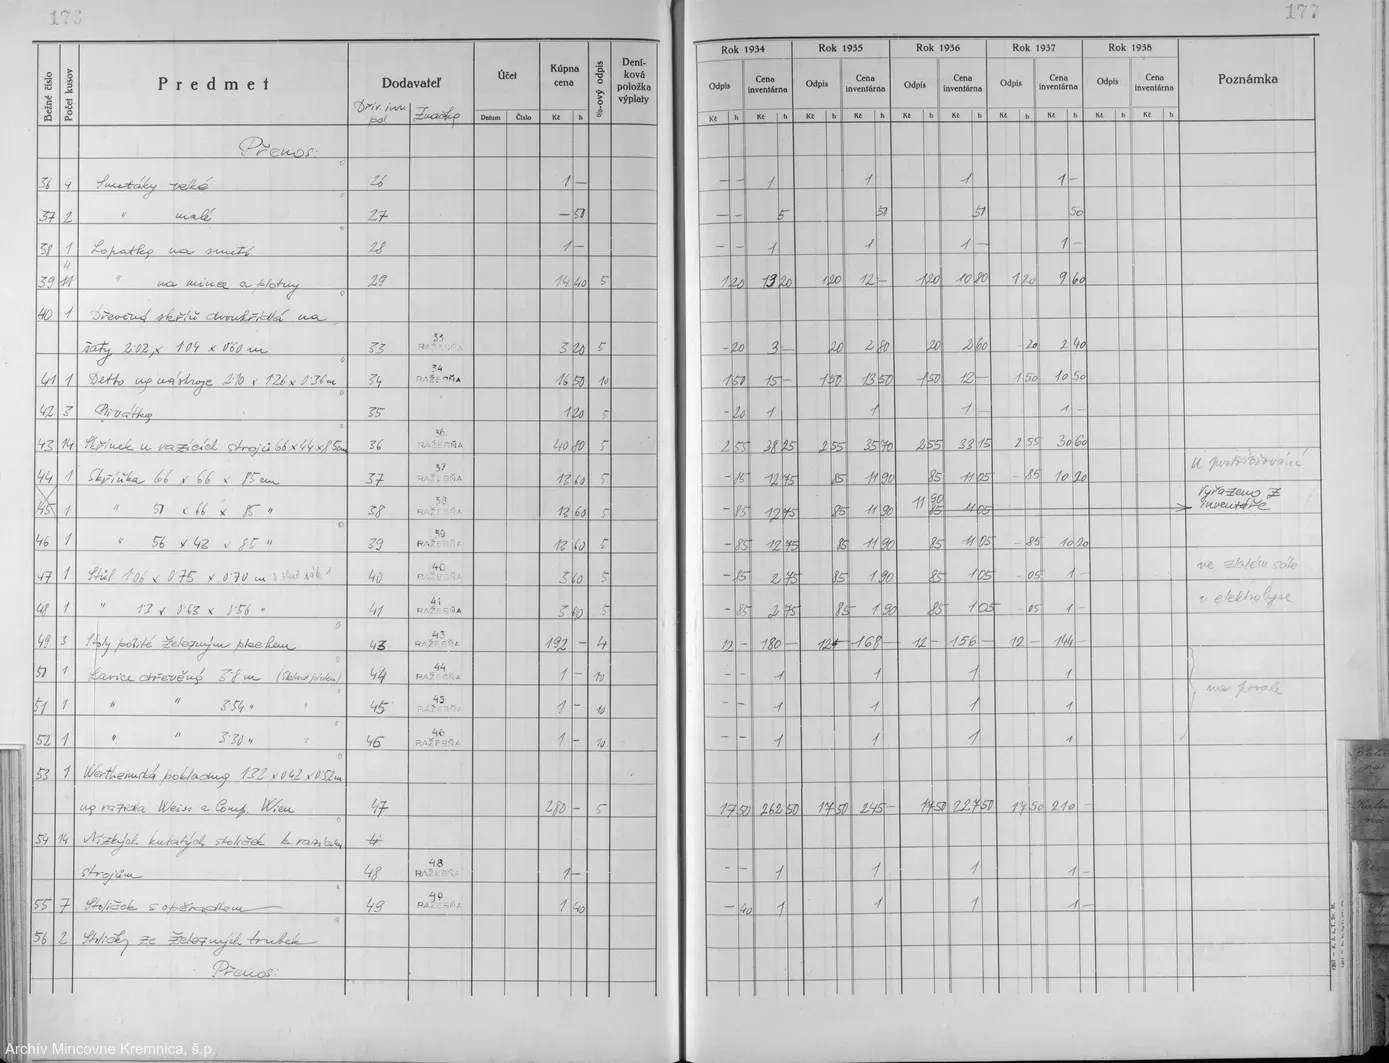 176
177
Bežné číslo Počet kusov Predmet Dodavateľ Účet Kúpna cena %-ový odpis Deníková položka výplaty
Rok 1934 Rok 1935 Rok 1936 Rok 1937 Rok 1938
Odpis Cena inventárna Odpis Cena inventárna Odpis Cena inventárna Odpis Cena inventárna Odpis Cena inventárna Poznámka
Značka Datum Číslo Kč h
Kč h Kč h Kč h Kč h Kč h Kč h Kč h Kč h Kč h Kč h
Přenos:
36 4 Smetáky velké 26 1 — — — 1 1 1 1 —
37 2 " malé 27 — 50 — — 5 50 50 50
38 1 Lopatka na smetí 28 1 — — — 1 1 1 — 1 —
39 4 " na mince a plotny 29 14 40 5 1 20 13 20 1 20 12 — 1 20 10 80 1 20 9 60
40 1 Dřevěná skříň dvoukřídlá na
šaty 2.02 x 1.04 x 0.60 m 33 RAŽEBŇA 3 20 5 — 20 3 — 20 2 80 20 2 60 — 20 2 40
41 1 Detto na nástroje 2.10 x 1.26 x 0.36 m 34 34 RAŽEBŇA 16 50 10 1 50 15 — 1 50 13 50 1 50 12 — 1 50 10 50
42 3 35 1 20 5 — 20 1 1 1 — 1 —
43 14 Skřínek u razících strojů 66 x 44 x 85 cm 36 36 RAŽEBŇA 40 80 5 2 55 38 25 2 55 35 70 2 55 33 15 2 55 30 60
44 1 Skříňka 66 x 66 x 85 cm 37 37 RAŽEBŇA 13 60 5 — 85 12 75 85 11 90 85 11 05 — 85 10 20
45 1 " 51 x 66 x 85 " 38 RAŽEBŇA 13 60 5 — 85 12 75 85 11 90 11 90 85 11 05 Vyřazeno z inventáře
46 1 " 56 x 43 x 85 " 39 39 RAŽEBŇA 13 60 5 — 85 12 75 85 11 90 85 11 05 — 85 10 20
47 1 Stůl 1.06 x 0.75 x 0.70 m 40 40 RAŽEBŇA 3 60 5 — 85 2 75 85 1 90 85 1 05 — 05 1 — ve zlatém sále
48 1 " 1.3 x 0.63 x 0.56 " 41 41 RAŽEBŇA 3 60 5 — 85 2 75 85 1 90 85 1 05 — 05 1 — v elektrolyse
49 3 Stoly pobité železným plechem 43 43 RAŽEBŇA 192 — 4 12 — 180 — 12 168 — 12 — 156 — 12 — 144 —
50 1 Lavice dřevěná 3.8 m 44 44 RAŽEBŇA 1 — 10 — — 1 1 1 1
51 1 " " 3.54 " 45 45 RAŽEBŇA 1 — 10 — — 1 1 1 1
52 1 " " 3.30 " 46 46 RAŽEBŇA 1 — 10 — — 1 1 1 1
53 1 Wertheimská pokladna 1.32 x 0.42 x 0.52 m
na razidla Weiss a Comp. Wien 47 280 — 5 17 50 262 50 17 50 245 — 17 50 227 50 17 50 210 —
54 14 Nízkých kulatých stoliček k razícím
strojům 48 48 RAŽEBŇA 1 — — — 1 1 1 1 —
55 7 Stoliček s opěradlem 49 49 RAŽEBŇA 1 40 — 40 1 1 1 1 —
56 2 Stoličky ze železných trubek
Přenos:
Archív Mincovne Kremnica, š.p.